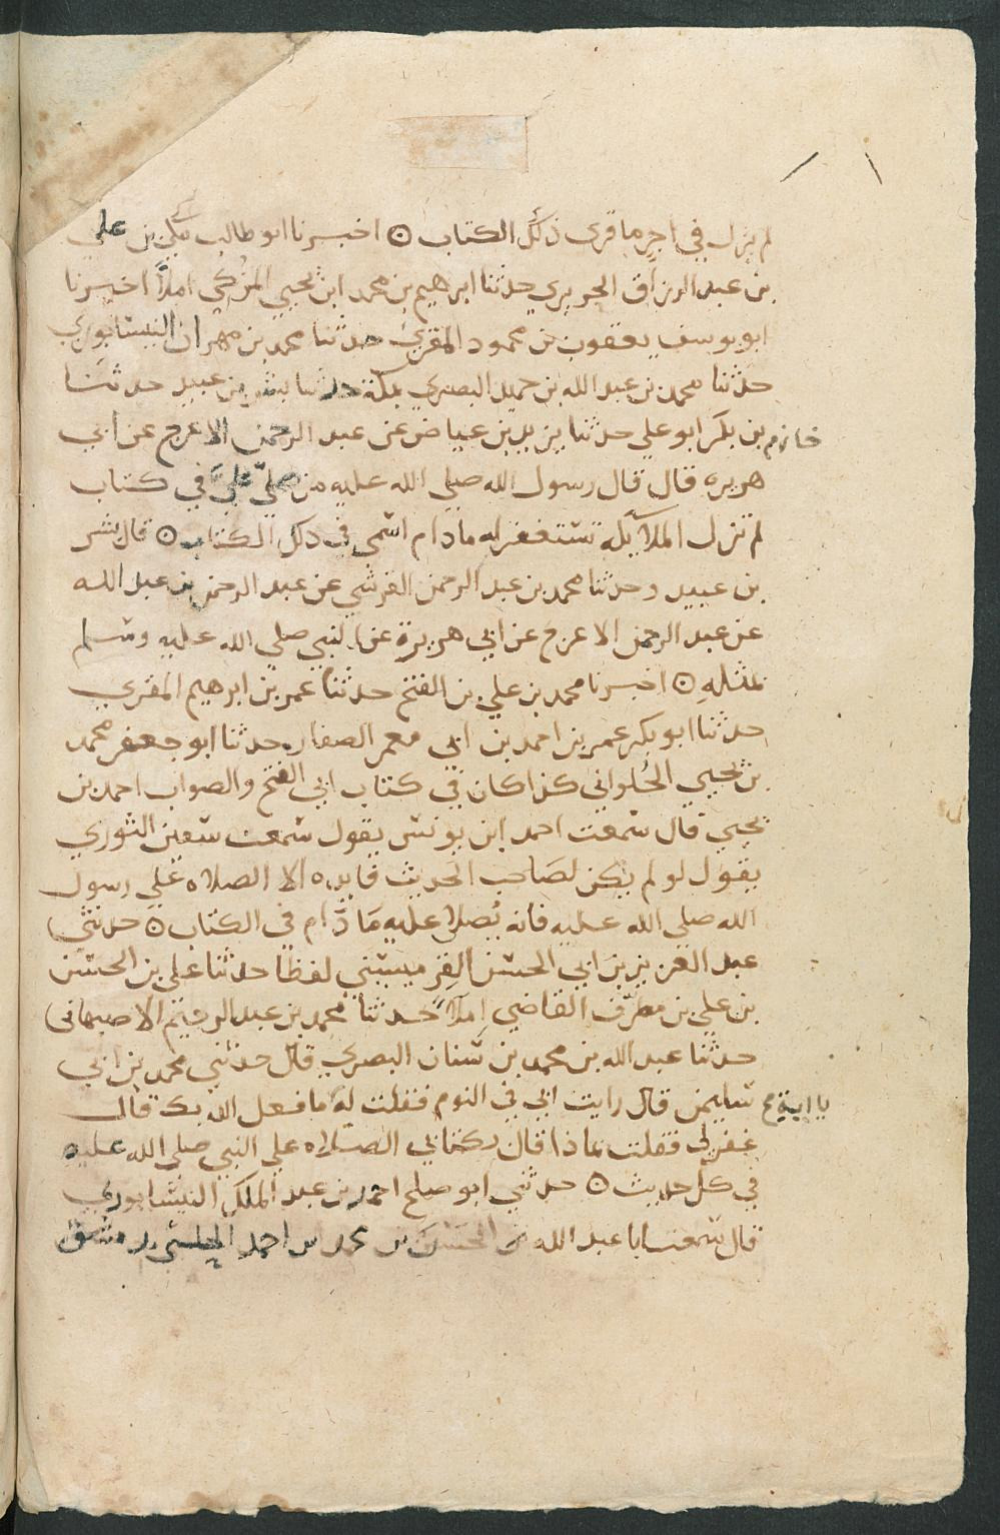 لم يزل في اجر ما قرى ذلك الكتاب ۝ اخبرنا ابو طالب مكي بن علي
بن عبد الرزاق الحريري حدثنا ابرهيم بن محمد ابن يحيي المزكي املاً اخبرنا
ابو يوسف يعقوب بن محمود المقري حدثنا محمد بن مهران النيسابوري
حدثنا محمد بن عبد الله بن حميد البصري بمكة حدثنا بشر بن عبيد حدثنا
خازم بن بكر ابو علي حدثنا يزيد بن عياض عن عبد الرحمن الاعرج عن ابي
هريره قال قال رسول الله صلي الله عليه من صلي علي في كتاب
لم تزل الملائكة تستغفر له ما دام اسمي في ذلك الكتاب ۝ قال بشر
بن عبيد وحدثنا محمد بن عبد الرحمن القرشي عن عبد الرحمن بن عبد الله
عن عبد الرحمن الاعرج عن ابي هريرة عن النبي صلي الله عليه وسلم
بمثله ۝ اخبرنا محمد بن علي بن الفتح حدثنا عمر بن ابرهيم المقري
حدثنا ابو بكر عمر بن احمد بن ابي معمر الصفار حدثنا ابو جعفر محمد
بن يحيي الحُلواني كذا كان في كتاب ابي الفتح والصواب احمد بن
يحيي قال سمعت احمد ابن يونس يقول سمعت سفين الثوري
يقول لو لم يكن لصاحب الحديث فايده الا الصلاه علي رسول
الله صلي الله عليه فانه يُصلا عليه ما دام في الكتاب ۝ حدثني
عبد العزيز بن ابي الحسن القرميسيني لفظا حدثنا علي بن الحسن
بن علي بن مطرّف القاضي املاً حدثنا محمد بن عبد الرحيم الاصبهاني
حدثنا عبد الله بن محمد بن سنان البصري قال حدثني محمد بن ابي
سليمن قال رايت ابي في النوم فقلت له ما فعل الله بك قال
غفر لي فقلت بماذا قال بكتابي الصلاه علي النبي صلي الله عليه
في كل حديث ۝ حدثني ابو صلح احمد بن عبد الملك النيسابوري
قال سمعت ابا عبد الله بن الحسين بن محمد بن احمد الحلبي بدمشق